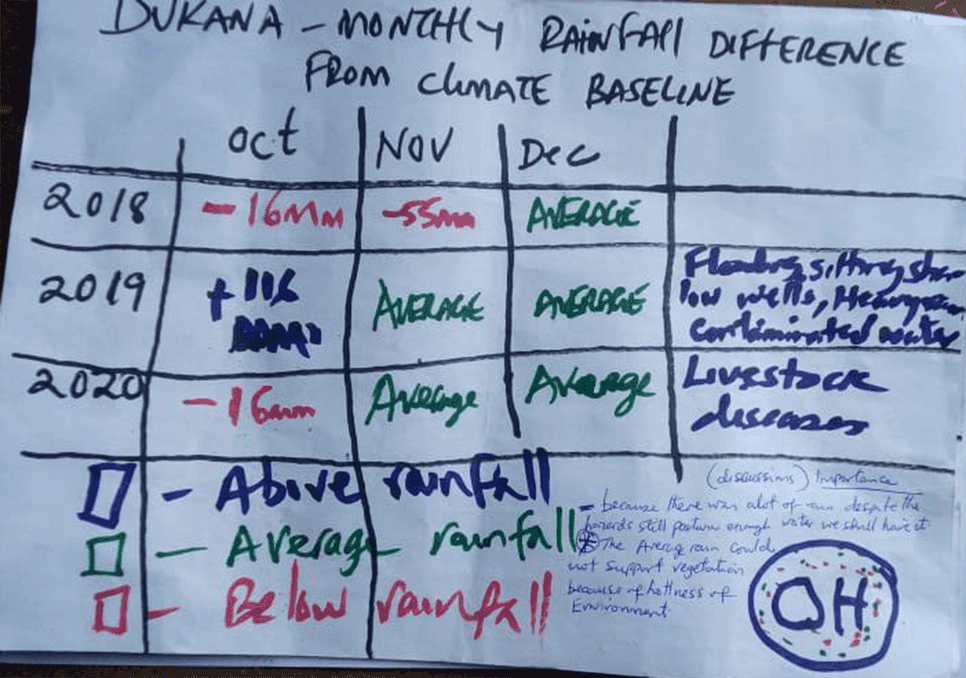 DUKANA - MONTHLY RAINFALL DIFFERENCE
FROM CLIMATE BASELINE
Oct NOV Dec
2018 -16Mm -55mm AVERAGE
2019 +116 AVERAGE AVERAGE Flooding, silting shallow wells,
contaminated water
2020 -16mm Average Average Livestock
diseases
- Above rainfall
- Average rainfall
- Below rainfall
(discussions) Importance
- because there was alot of rain despite the
hazards still pasture enough water we shall have it
* The Averag rain could
not support vegetation
because of hotness of
Environment
OH